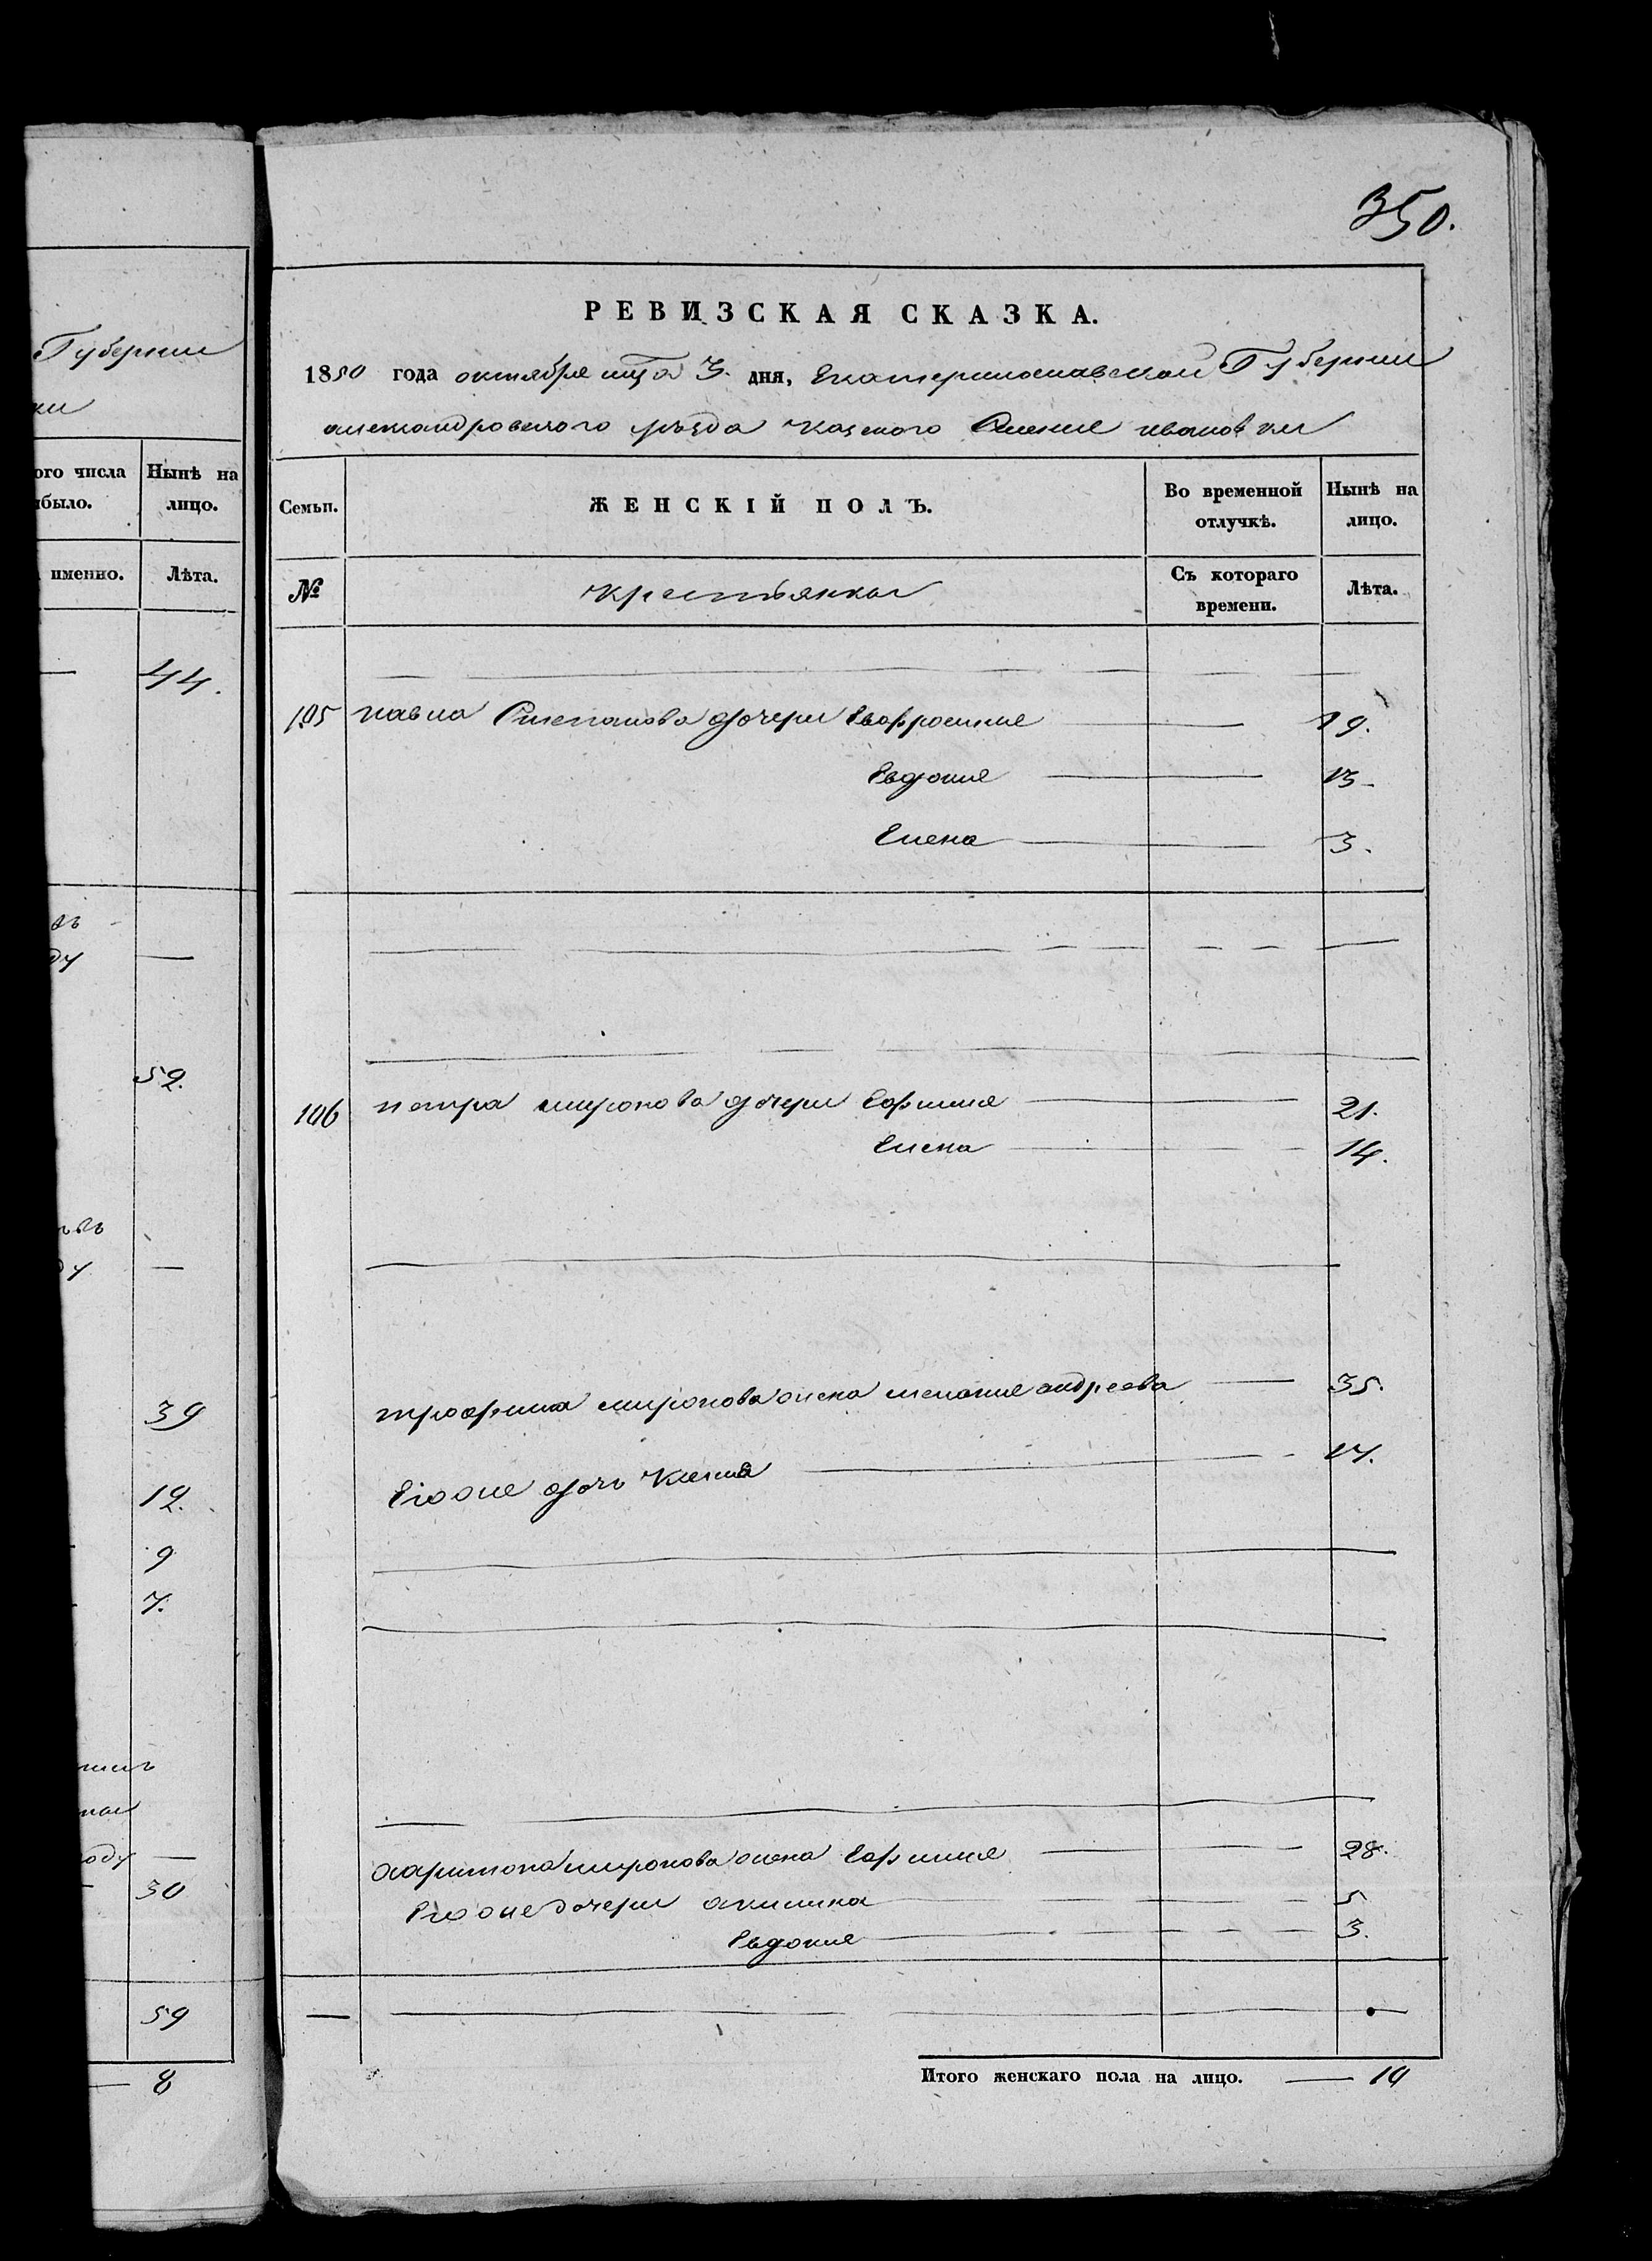 Губерніи
ки
ого числа
ыбыло.
Нынѣ на
лицо.
именно.
Лѣта.
44.
ду
52.
39
12.
9
7.
оду
30
59
8
350.
РЕВИЗСКАЯ СКАЗКА.
1850 года октября мця 3. дня, Екатеринославской Губерніи
александровского уѣзда казеного Селения ивановки
Семьи.
ЖЕНСКІЙ ПОЛЪ.
Во временной
отлучкѣ.
Нынѣ на
лицо.
№
крестьянки
Съ котораго
времени.
Лѣта.
105 павла Степанова дочери Евфросиния 19.
Евдокия 13.
Елена 3.
106 петра миронова дочери Ефимия 21.
Елена 14.
трофима миронова жена мелания андреева 35.
Егоже дочь 17.
харитона миронова жена Ефимия 28.
Егоже дочери акилина 5
Евдокия 3.
Итого женскаго пола на лицо. 10